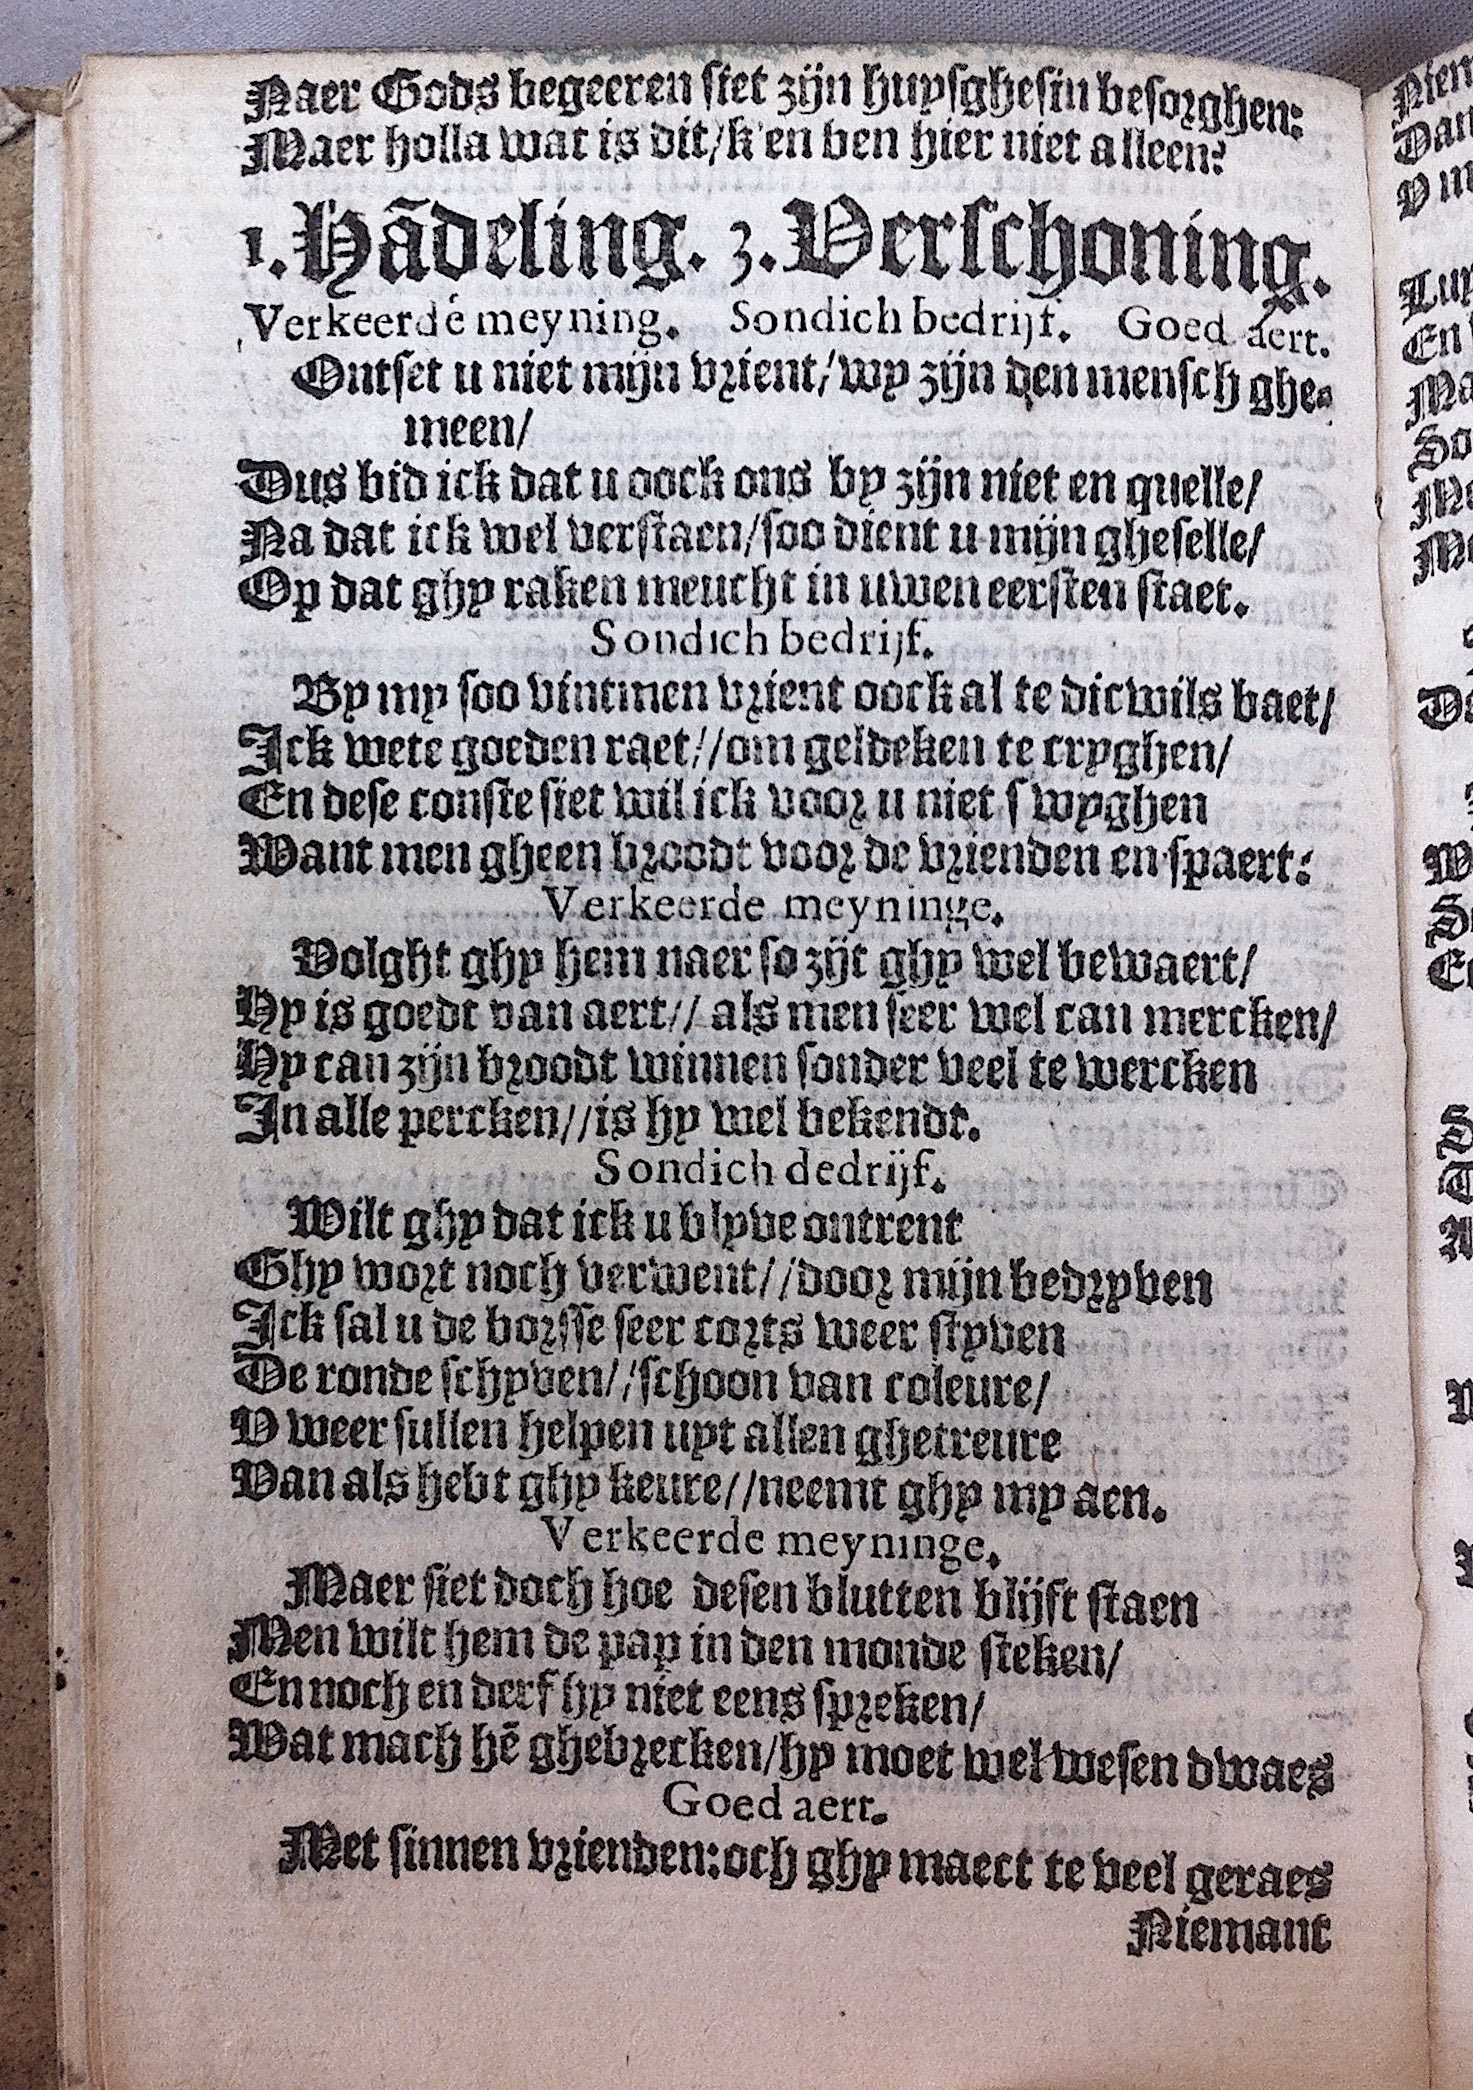 Naer Gods begeeren siet zijn huysghesin besorghen:
Maer holla wat is dit/k'en ben hier niet alleen?
1. Hãdeling. 3. Verschoning.
Verkeerde meyning. Sondich bedrijf. Goed aert.
Ontset u niet mijn vrient/wy zijn den mensch ghe-
meen/
Dus bid ick dat u oock ons by zijn niet en quelle/
Na dat ick wel verstaen/soo dient u mijn gheselle/
Op dat ghy raken meucht in uwen eersten staet.
Sondich bedrijf.
By my soo vintmen vrient oock al te dicwils baet/
Ick wete goeden raet//om geldeken te cryghen/
En dese conste siet wil ick voor u niet swyghen
Want men gheen broodt voor de vrienden en spaert:
Verkeerde meyninge.
Volght ghy hem naer so zijt ghy wel bewaert/
Hy is goedt van aert// als men seer wel can mercken/
Hy can zijn broodt winnen sonder veel te wercken
In alle percken//is hy wel bekendt.
Sondich dedrijf.
Wilt ghy dat ick u blyve ontrent
Ghy wort noch verwent//door mijn bedryven
Ick sal u de borsse seer corts weer styven
De ronde schyven//schoon van coleure/
V weer sullen helpen uyt allen ghetreure
Van als hebt ghy keure//neemt ghy my aen.
Verkeerde meyninge.
Maer siet doch hoe desen blutten blijft staen
Men wilt hem de pap in den monde steken/
En noch en derf hy niet eens spreken/
Wat mach hẽ ghebrecken/hy moet wel wesen dwaes
Goed aert.
Met sinnen vrienden: och ghy maect te veel geraes
Niemant